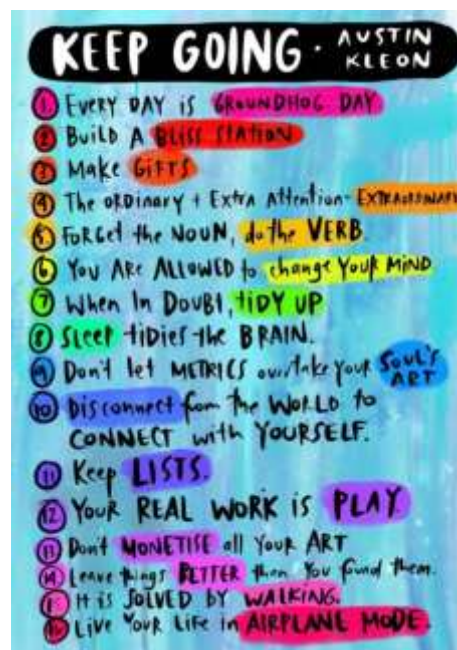 KEEP GOING · AUSTIN KLEON
1. EVERY DAY is GROUNDHOG DAY
2 BuilD A BLISS STATION
3 Make GIFTS
4 The ORDINARY + Extra Attention- EXTRAORDINARY
5 FORGet the NOUN, do the VERB.
6 YOU ARE ALLOWED to change YOUR MIND
7 When In DOUBt, tiDY UP
8 SLEEP tiDies the BRAIN.
9 Don't let METRICS overtake your SOUL'S ART
10 Disconnect from the WORLD to
CONNECT with YOURSELF.
11 Keep LISTS.
12 YOUR REAL WORK is PLAY
13 Don't MONETISE all YOUR ART
14 Leave things BETTER then You found them.
It is SOLVED BY WALKING.
LIVE YOUR LIFE in AIRPLANE MODE.